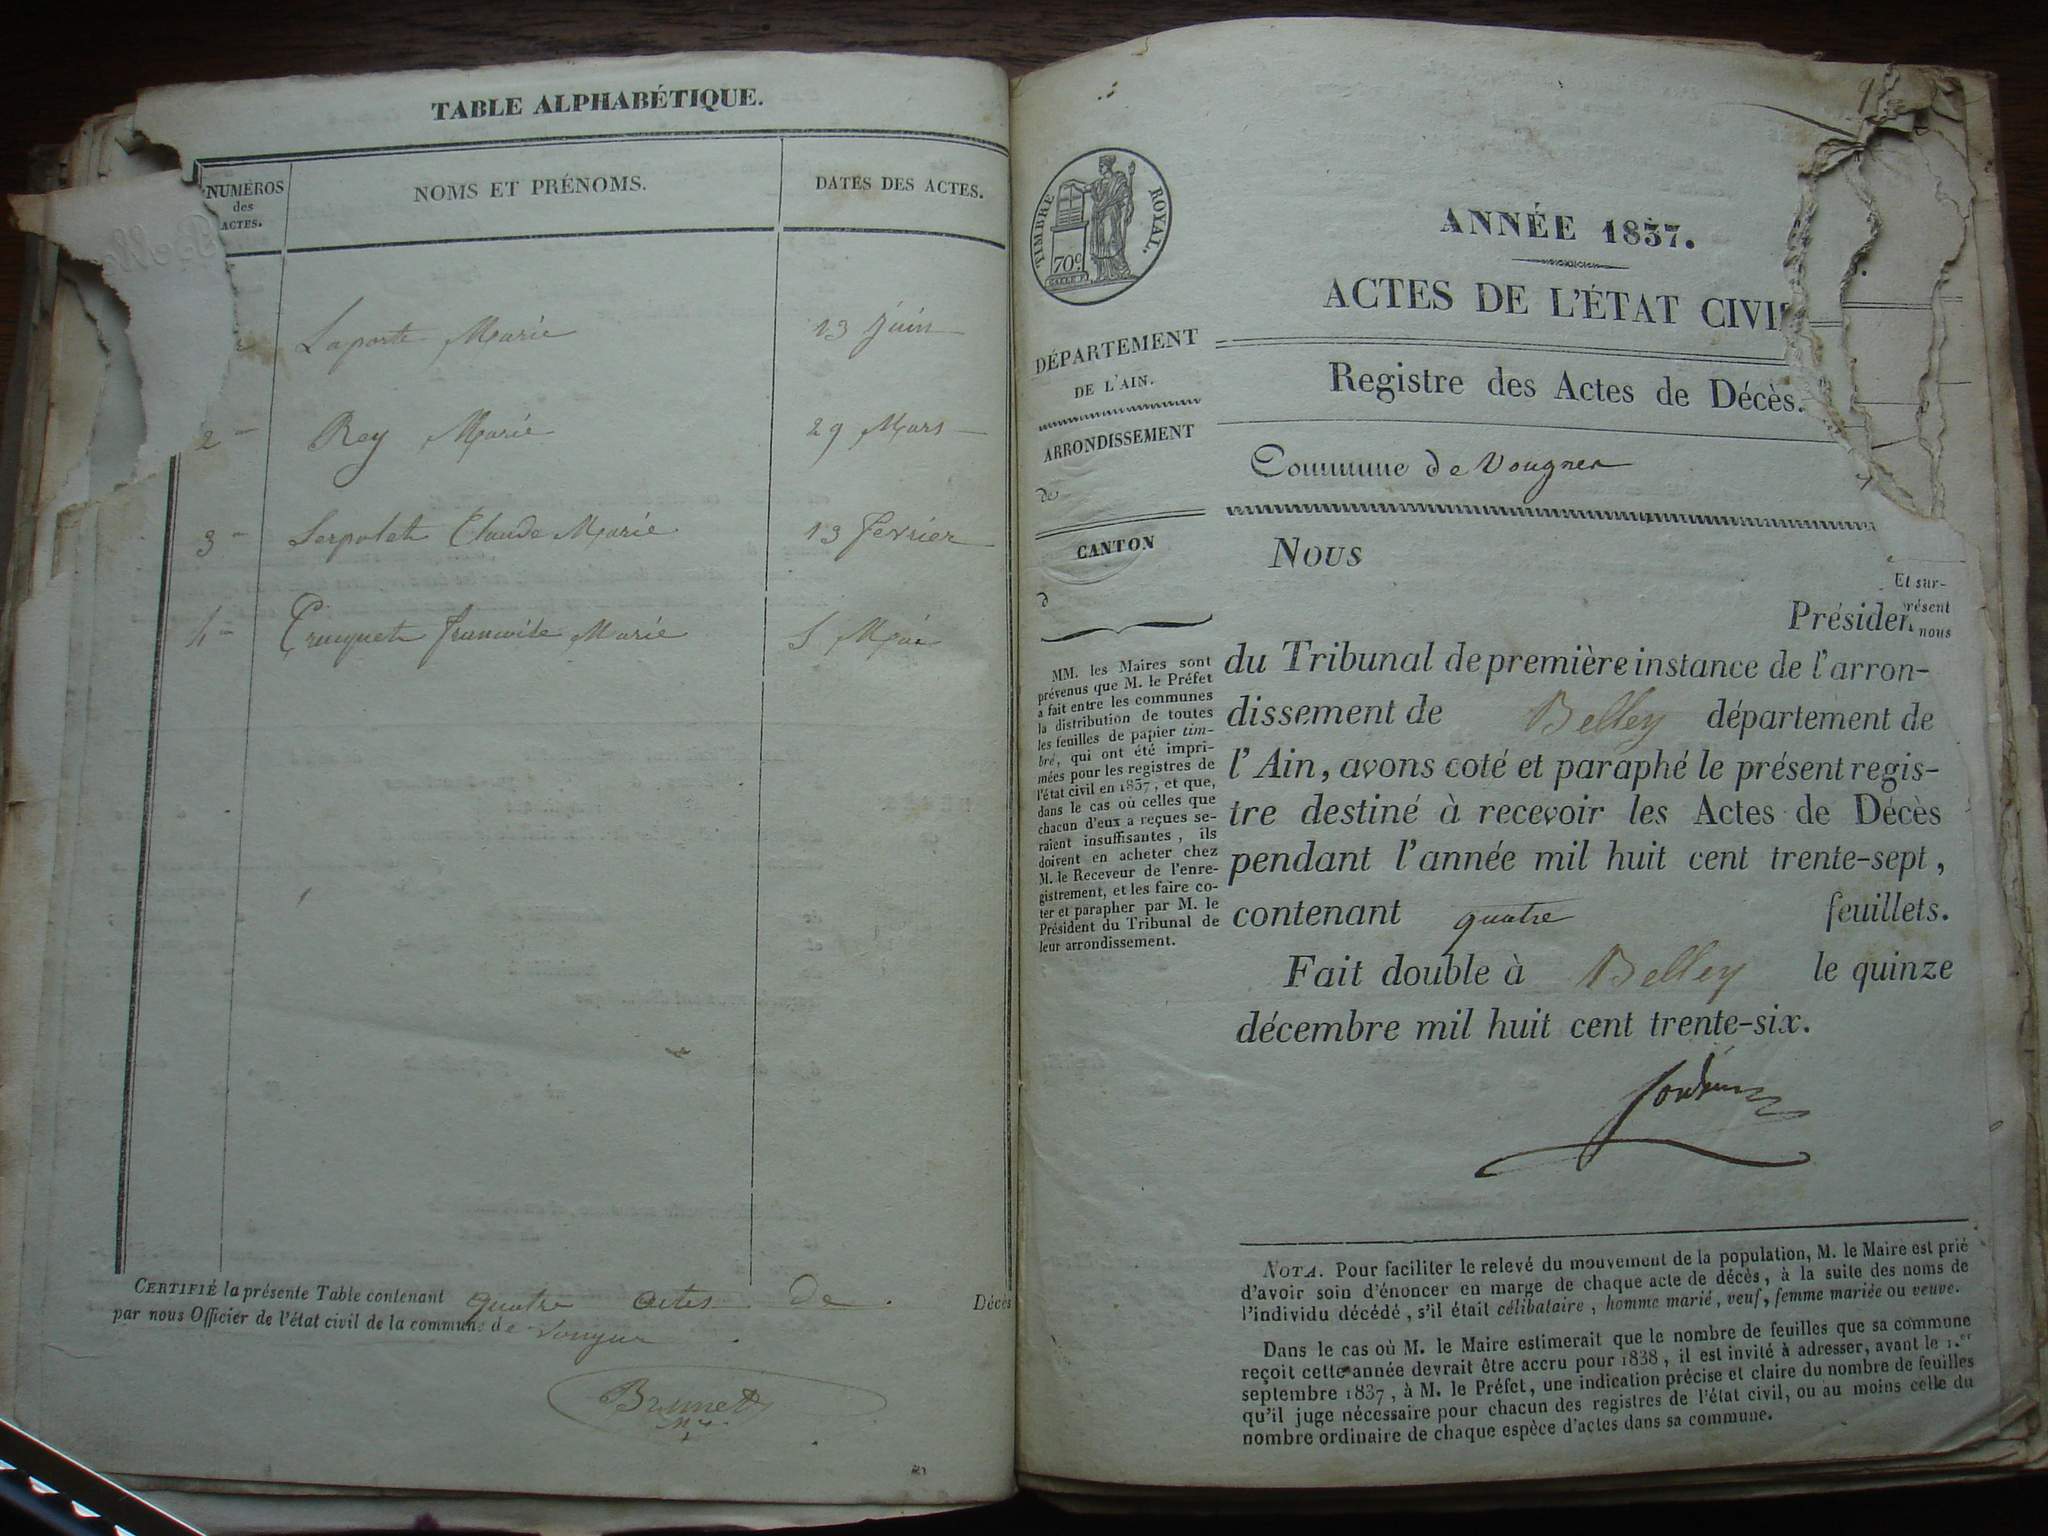 TABLE ALPHABÉTIQUE.
NUMÉROS
des
ACTES.
NOMS ET PRÉNOMS.
DATES DES ACTES.
Laporte Marie 13 juin
2 Rey Marie 29 Mars
3 Serpolet Claude Marie 13 fevrier
4 Marie 5
CERTIFIÉ la présente Table contenant quatre actes de Décès
par nous Officier de l'état civil de la commune de Vougnes
Brunet
TIMBRE ROYAL.
70c
ANNÉE 1837.
ACTES DE L'ÉTAT CIVI
DÉPARTEMENT
DE L'AIN.
Registre des Actes de Décès.
ARRONDISSEMENT
de
Commune de Vougnes
CANTON
d
Nous
Et sur-
résent
nous
Présiden
MM. les Maires sont
prévenus que M. le Préfet
a fait entre les communes
la distribution de toutes
les feuilles de papier tim-
bré, qui ont été impri-
mées pour les registres de
l'état civil en 1837, et que,
dans le cas où celles que
chacun d'eux a reçues se-
raient insuffisantes, ils
doivent en acheter chez
M. le Receveur de l'enre-
gistrement, et les faire co-
ter et parapher par M. le
Président du Tribunal de
leur arrondissement.
du Tribunal de première instance de l'arron-
dissement de Belley département de
l'Ain, avons coté et paraphé le présent regis-
tre destiné à recevoir les Actes de Décès
pendant l'année mil huit cent trente-sept,
contenant quatre feuillets.
Fait double à Belley le quinze
décembre mil huit cent trente-six.
NOTA. Pour faciliter le relevé du mouvement de la population, M. le Maire est prié
d'avoir soin d'énoncer en marge de chaque acte de décès, à la suite des noms de
l'individu décédé, s'il était célibataire, homme marié, veuf, femme mariée ou veuve.
Dans le cas où M. le Maire estimerait que le nombre de feuilles que sa commune
reçoit cette année devrait être accru pour 1838, il est invité à adresser, avant le 1.er
septembre 1837, à M. le Préfet, une indication précise et claire du nombre de feuilles
qu'il juge nécessaire pour chacun des registres de l'état civil, ou au moins celle du
nombre ordinaire de chaque espèce d'actes dans sa commune.